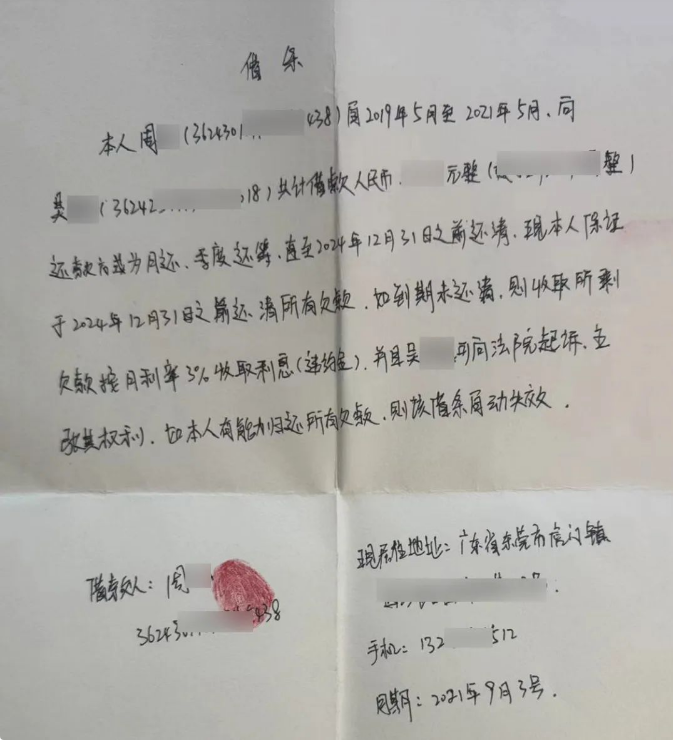 借条
本人周 (3624301 438)自2019年5月至2021年5月、向
吴 (36242 018)共计借款人民币 元整( 整)
还款方式为月还、季度还等,直至2024年12月31日之前还清、现本人保证
于2024年12月31日之前还清所有欠款,如到期未还清,则收取所剩
欠款按月利率3%收取利息(违约金),并且吴 可向法院起诉、主
张其权利,如本人有能力归还所有欠款,则该借条自动失效.
借款人:周
362430 438
现居住地址:广东省东莞市虎门镇
手机:132 512
日期:2021年9月3号.